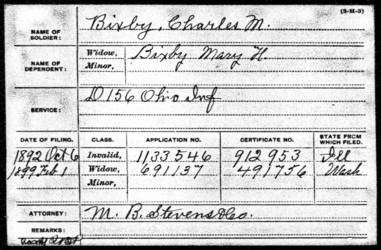 (3-H-3)
NAME OF SOLDIER: Bixby, Charles M.
NAME OF DEPENDENT: Widow, Bixby Mary H.
Minor,
SERVICE: D 156 Ohio Inf
DATE OF FILING. CLASS. APPLICATION NO. CERTIFICATE NO. STATE FROM WHICH FILED.
1892 Oct 6 Invalid, 1133546 912953 Ill
1899 Feb 1 Widow, 691137 491756 Wash
Minor,
ATTORNEY: M. B. Stevens & Co.
REMARKS: